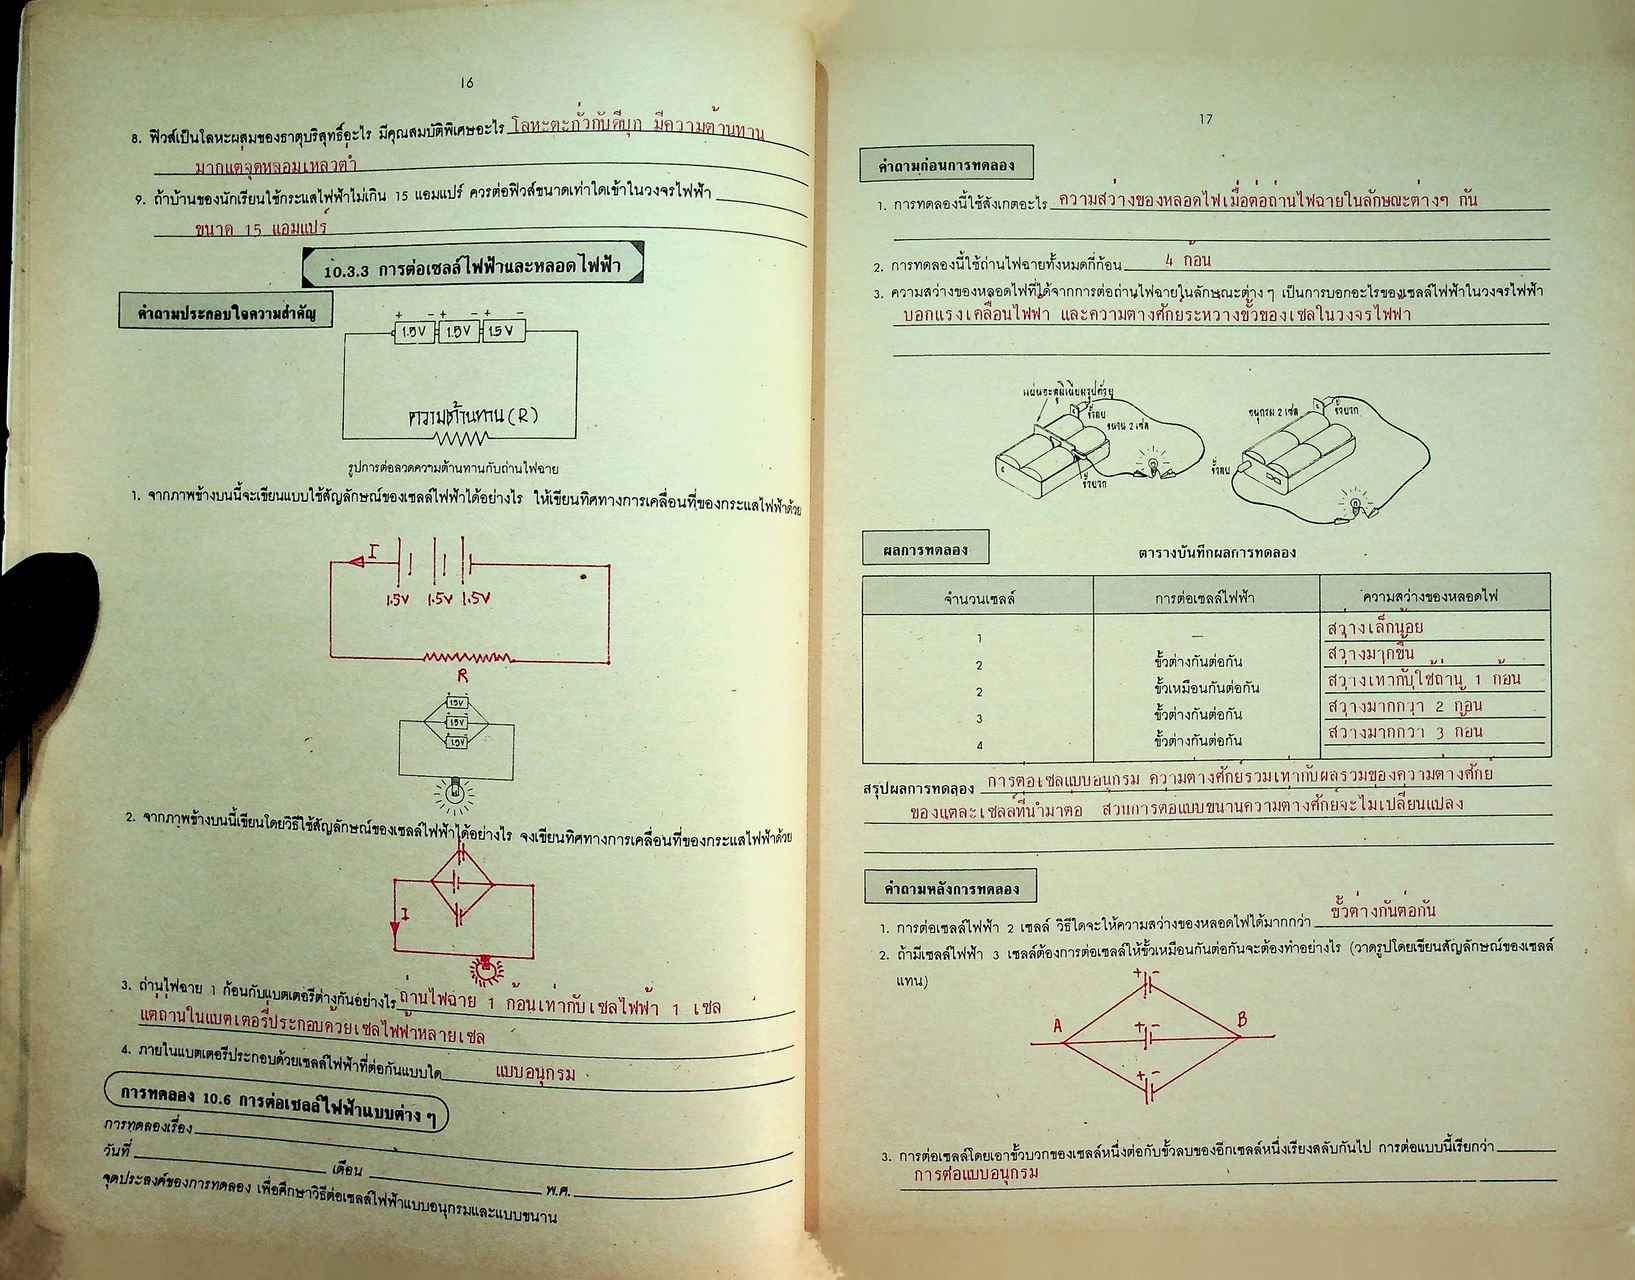 16
8. ฟิวส์เป็นโลหะผสมของธาตุบริสุทธิ์อะไร มีคุณสมบัติพิเศษอะไร โลหะตะกั่วกับดีบุก มีความต้านทาน
มากแต่จุดหลอมเหลวต่ำ
9. ถ้าบ้านของนักเรียนใช้กระแสไฟฟ้าไม่เกิน 15 แอมแปร์ ควรต่อฟิวส์ขนาดเท่าใดเข้าในวงจรไฟฟ้า
ขนาด 15 แอมแปร์
10.3.3 การต่อเซลล์ไฟฟ้าและหลอดไฟฟ้า
คำถามประกอบใจความสำคัญ
+ - + - + -
1.5V 1.5V 1.5V
ความต้านทาน (R)
รูปการต่อลวดความต้านทานกับถ่านไฟฉาย
1. จากภาพข้างบนนี้จะเขียนแบบใช้สัญลักษณ์ของเซลล์ไฟฟ้าได้อย่างไร ให้เขียนทิศทางการเคลื่อนที่ของกระแสไฟฟ้าด้วย
I
1.5V 1.5V 1.5V
R
1.5V
1.5V
1.5V
2. จากภาพข้างบนนี้เขียนโดยวิธีใช้สัญลักษณ์ของเซลล์ไฟฟ้าได้อย่างไร จงเขียนทิศทางการเคลื่อนที่ของกระแสไฟฟ้าด้วย
I
3. ถ่านไฟฉาย 1 ก้อนกับแบตเตอรี่ต่างกันอย่างไร ถ่านไฟฉาย 1 ก้อนเท่ากับเซลไฟฟ้า 1 เซล
แต่ถ่านในแบตเตอรี่ประกอบด้วยเซลไฟฟ้าหลายเซล
4. ภายในแบตเตอรี่ประกอบด้วยเซลล์ไฟฟ้าที่ต่อกันแบบใด แบบอนุกรม
การทดลอง 10.6 การต่อเซลล์ไฟฟ้าแบบต่าง ๆ
การทดลองเรื่อง
วันที่ เดือน พ.ศ.
จุดประสงค์ของการทดลอง เพื่อศึกษาวิธีต่อเซลล์ไฟฟ้าแบบอนุกรมและแบบขนาน
17
คำถามก่อนการทดลอง
1. การทดลองนี้ใช้สังเกตอะไร ความสว่างของหลอดไฟเมื่อต่อถ่านไฟฉายในลักษณะต่างๆ กัน
2. การทดลองนี้ใช้ถ่านไฟฉายทั้งหมดกี่ก้อน 4 ก้อน
3. ความสว่างของหลอดไฟที่ได้จากการต่อถ่านไฟฉายในลักษณะต่าง ๆ เป็นการบอกอะไรของเซลล์ไฟฟ้าในวงจรไฟฟ้า
บอกแรงเคลื่อนไฟฟ้า และความต่างศักย์ระหว่างขั้วของเซลในวงจรไฟฟ้า
แผ่นอะลูมิเนียมรูปตัวยู
ขั้วลบ
ขนาน 2 เซล
ขั้วบวก
อนุกรม 2 เซล
ขั้วบวก
ขั้วลบ
ผลการทดลอง
ตารางบันทึกผลการทดลอง
จำนวนเซลล์ การต่อเซลล์ไฟฟ้า ความสว่างของหลอดไฟ
1 — สว่างเล็กน้อย
2 ขั้วต่างกันต่อกัน สว่างมากขึ้น
2 ขั้วเหมือนกันต่อกัน สว่างเท่ากับใช้ถ่าน 1 ก้อน
3 ขั้วต่างกันต่อกัน สว่างมากกว่า 2 ก้อน
4 ขั้วต่างกันต่อกัน สว่างมากกว่า 3 ก้อน
สรุปผลการทดลอง การต่อเซลแบบอนุกรม ความต่างศักย์รวมเท่ากับผลรวมของความต่างศักย์
ของแต่ละเซลล์ที่นำมาต่อ ส่วนการต่อแบบขนานความต่างศักย์จะไม่เปลี่ยนแปลง
คำถามหลังการทดลอง
1. การต่อเซลล์ไฟฟ้า 2 เซลล์ วิธีใดจะให้ความสว่างของหลอดไฟได้มากกว่า ขั้วต่างกันต่อกัน
2. ถ้ามีเซลล์ไฟฟ้า 3 เซลล์ต้องการต่อเซลล์ให้ขั้วเหมือนกันต่อกันจะต้องทำอย่างไร (วาดรูปโดยเขียนสัญลักษณ์ของเซลล์
แทน)
+ -
A + - B
+ -
3. การต่อเซลล์โดยเอาขั้วบวกของเซลล์หนึ่งต่อกับขั้วลบของอีกเซลล์หนึ่งเรียงสลับกันไป การต่อแบบนี้เรียกว่า
การต่อแบบอนุกรม